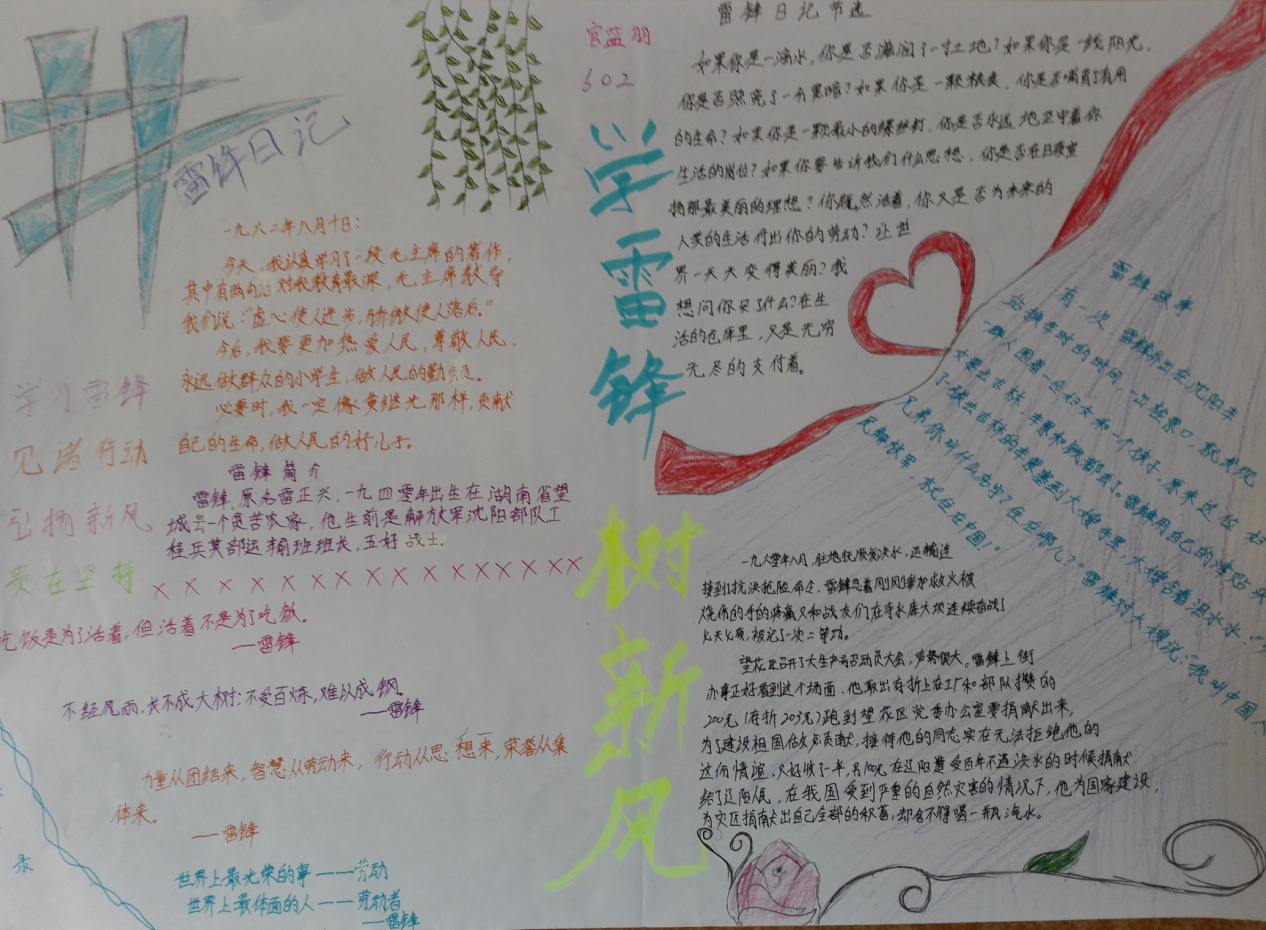 雷锋日记
一九六二年八月十日：
今天，我认真学习了一段毛主席的著作，
其中有两句话对我教育最深，毛主席教导
我们说："虚心使人进步，骄傲使人落后。"
今后，我要更加热爱人民，尊敬人民，
永远做群众的小学生，做人民的勤务员。
必要时，我一定像黄继光那样，贡献
自己的生命，做人民的好儿子。
学习雷锋
见诸行动
弘扬新风
贵在坚持
雷锋简介
雷锋，原名雷正兴，一九四零年出生在湖南省望
城县一个贫苦农家，他生前是解放军沈阳部队工
程兵某部运输班班长，五好战士。
吃饭是为了活着，但活着不是为了吃饭。
——雷锋
不经风雨，长不成大树；不受百炼，难以成钢。
——雷锋
力量从团结来，智慧从劳动来，行动从思想来，荣誉从集
体来。
——雷锋
世界上最光荣的事——劳动
世界上最体面的人——劳动者
——雷锋
录
官蓝羽
602
学雷锋
树新风
雷锋日记节选
如果你是一滴水，你是否滋润了一寸土地？如果你是一线阳光，
你是否照亮了一分黑暗？如果你是一颗粮食，你是否哺育了有用
的生命？如果你是一颗最小的螺丝钉，你是否永远地坚守着你
生活的岗位？如果你要告诉我们什么思想，你是否在日夜宣
扬那最美丽的理想？你既然活着，你又是否为未来的
人类的生活付出你的劳动？让世
界一天天变得美丽？我
想问你买了什么？在生
活的仓库里，又是无穷
无尽的支付着。
雷锋故事
有一次，雷锋外出在沈阳车
站换车时的时间，一出检票口，就发现
一群人围着一位妇女和一个孩子，原来这位妇
女要去吉林，车票和钱都丢了。雷锋用自己的津贴买
了一张去吉林的车票塞到大嫂手里，大嫂含着泪水
兄弟你叫什么名字？住在哪儿？"雷锋对大嫂说："我叫中国
民解放军，就住在中国！"
一九六零年八月，驻地抚顺发洪水，运输连
接到了抗洪抢险命令，雷锋忍着刚刚参加救火被
烧伤的手的疼痛又和战友们在寺水库大坝连续奋战了
七天七夜，被记了一次二等功。
望花区召开了大生产号召动员大会，声势很大。雷锋上街
办事正好看到这个场面，他取出存折上在工厂和部队攒的
200元（存折203元）跑到望花区党委办公室要捐献出来，
为了建设祖国做点贡献，接待他的同志实在无法拒绝他的
这份情谊，只好收下一半，另100元在辽阳遭受百年不遇洪水的时候捐献
给了辽阳人民，在我国受到严重的自然灾害的情况下，他为国家建设，
为灾区捐献出自己全部的积蓄，却舍不得喝一瓶汽水。